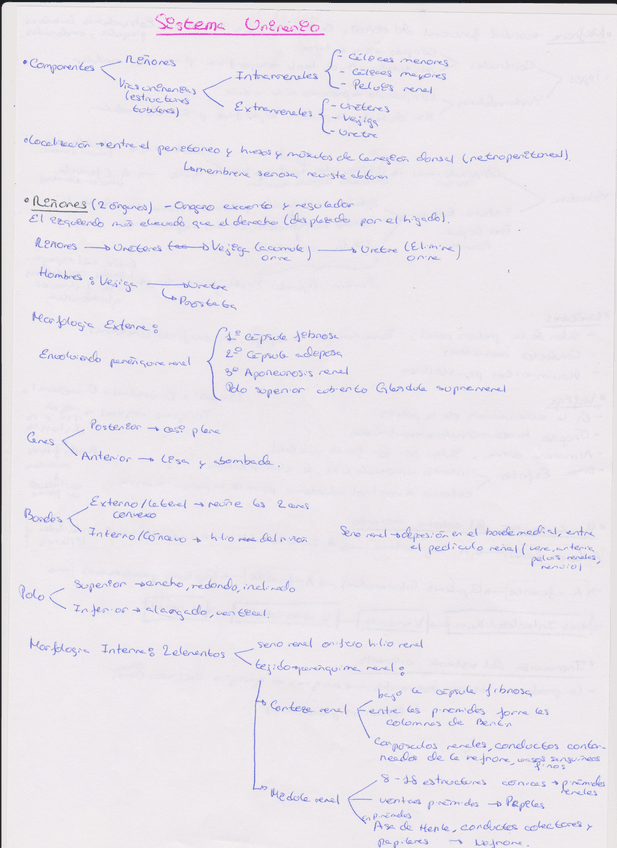 Sistema Urinario
• Componentes
Riñones
Vías urinarias (estructuras tubulares)
Intrarrenales
- Cálices menores
- Cálices mayores
- Pelvis renal
Extrarrenales
- Uréteres
- Vejiga
- Uretra
• Localización → entre el peritoneo y huesos y músculos de la región dorsal (retroperitoneal).
↳ membrana serosa reviste abdomen
• Riñones (2 órganos) - Órgano excreto y regulador
El izquierdo más elevado que el derecho (desplazado por el hígado).
Riñones → Uréteres → Vejiga (acumula orina) → Uretra (Elimina orina)
Hombres: Vejiga → Uretra
↳ Próstata
Morfología Externa:
Envolviendo parénquima renal
1º Cápsula fibrosa
2º Cápsula adiposa
3º Aponeurosis renal
Polo superior cubierto Glándula suprarrenal
Caras
Posterior → casi plana
Anterior → Lisa y abombada.
Bordes
Externo/Lateral → reúne las 2 caras
convexo
Interno/Cóncavo → hilio del riñón
Seno renal → depresión en el borde medial, entra
el pedículo renal (vena, arteria,
pelvis renales,
nervio)
Polo
Superior → ancho, redondo, inclinado
Inferior → alargado, vertical.
Morfología Interna: 2 elementos
seno renal orificio hilio renal
tejido → parénquima renal:
Corteza renal
bajo la cápsula fibrosa
entre las pirámides forma las
columnas de Bertin
Corpúsculos renales, conductos contor-
neados de la nefrona, vasos sanguíneos
finos
Médula renal
8 - 18 estructuras cónicas → pirámides
renales
pirámides → Papilas
en pirámides
Asa de Henle, conductos colectores y
papilares → Nefrona.